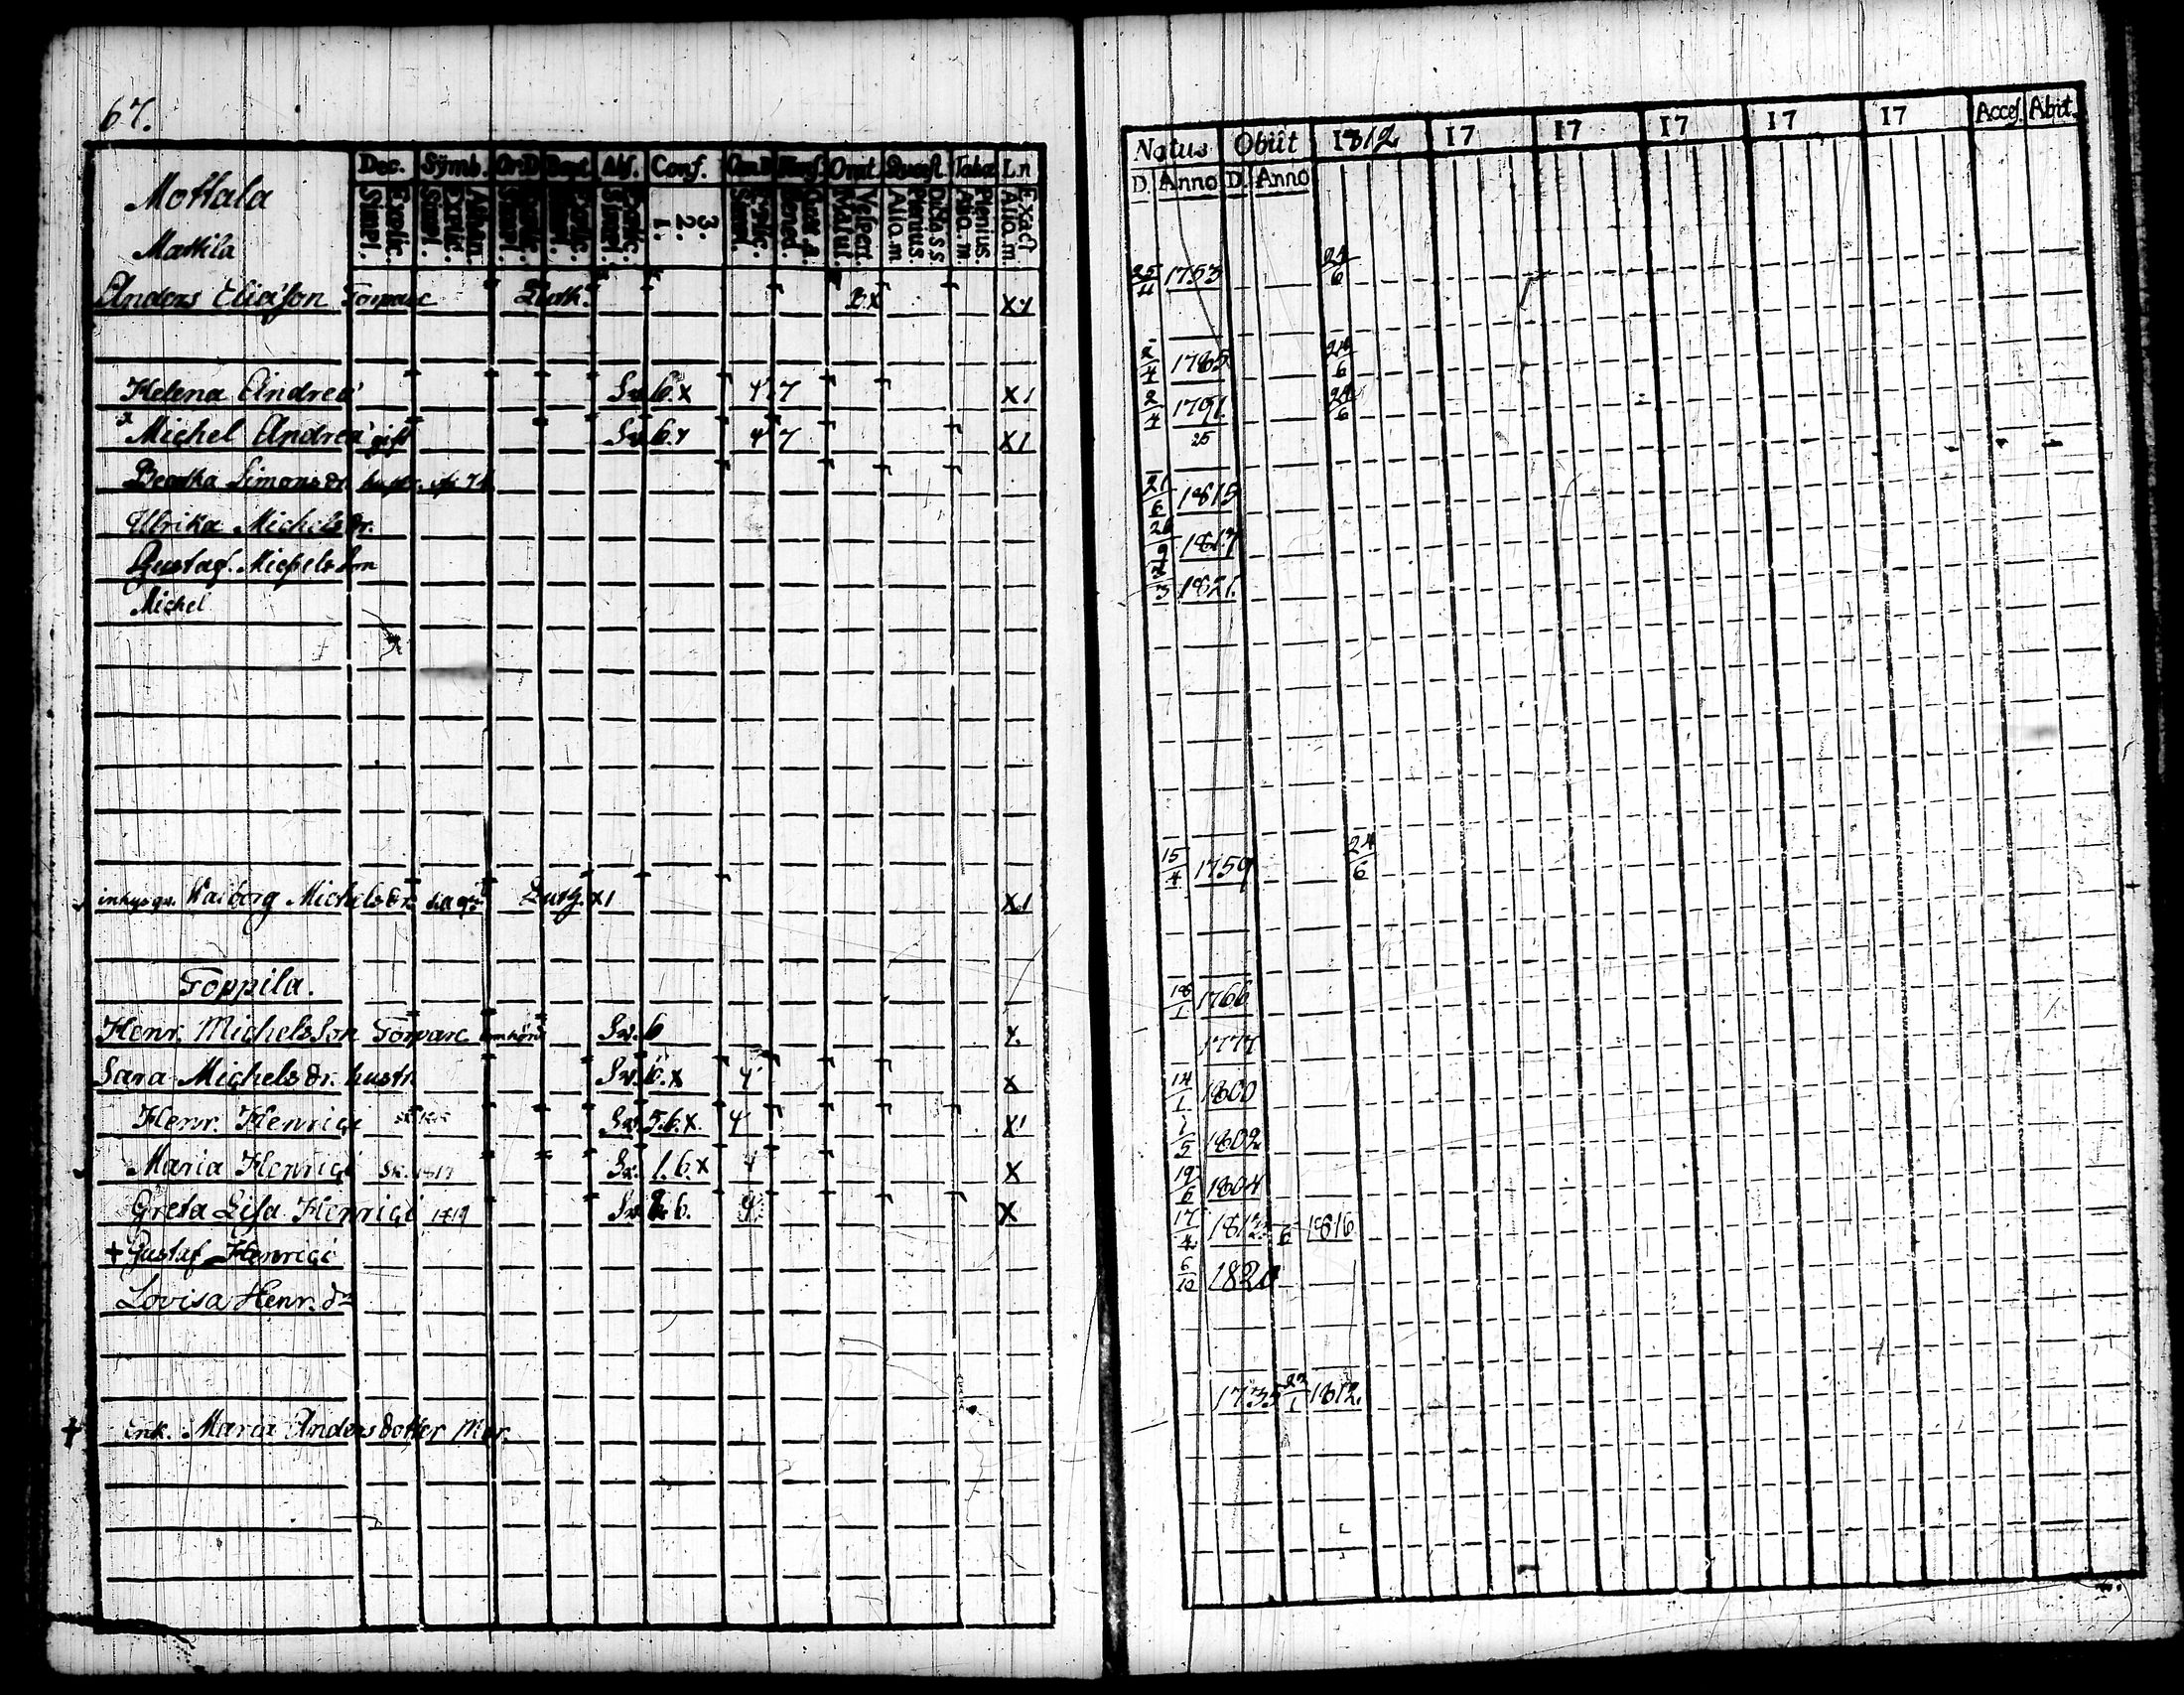 67.
Dec. Symb. Or:D Bapt. Abs. Conf. Cæn.D Mens. Orat. Quæst. Tabul. Ln
Explic. Simpl. Athan. Explic. Simpl. Explic. Simpl. Explic. Simpl. Explic. Simpl. 3. 2. 1. Explic. Simpl. Bened. Vespert. Matut. Dict. S. S. Plenius. Aliq. m. Plenius. Aliq. m. Exact. Aliq. m.
Mottala
Mattila
Anders Eliæson Torpare Luth. X1
Helena Andreæ Sv. 6. x 4 7 X1
Michel Andreæ gift Sv. 6. 4 7 X1
Beata Simonsdr. hustr.
Ulrika Michelsdr.
Gustaf. Michelsson
Michel
inhysqv. Walborg Michelsdr. Luth. X1 X1
Toppila.
Henr. Michelsson Torpare Sv. 6
Sara Michelsdr. hustr. Sv. 6. x 4 X
Henr. Henrici Sv. 5. 6. x. 4 X1
Maria Henrici 1817 Sv. 1. 6. x X
Greta Lisa Henrici 1819 Sv. 6. 4 X
+ Gustaf Henrici
Lovisa Henr. dr
+ enk. Maria Andersdotter
Natus Obiit 1812 17 17 17 17 17 Acces. Abiit.
D. Anno D. Anno
25/11 1753 24/6
2/4 1785 24/6
2/4 1791. 24/6
25
21/6 1815
26/9 1817
2/3 1821.
15/4 1759 24/6
18/1 1766
1777
14/1 1800
1/5 1802
19/6 1804
17/4 1812 6 1816
6/10 1820
1735 23/1 1812.